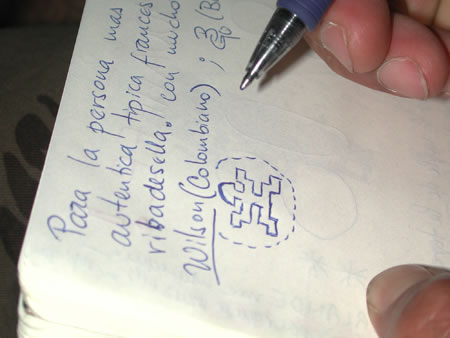 Para la persona mas
autentica tipica frances
ribadesella. con mucho
Wilson (Colombiano) ;